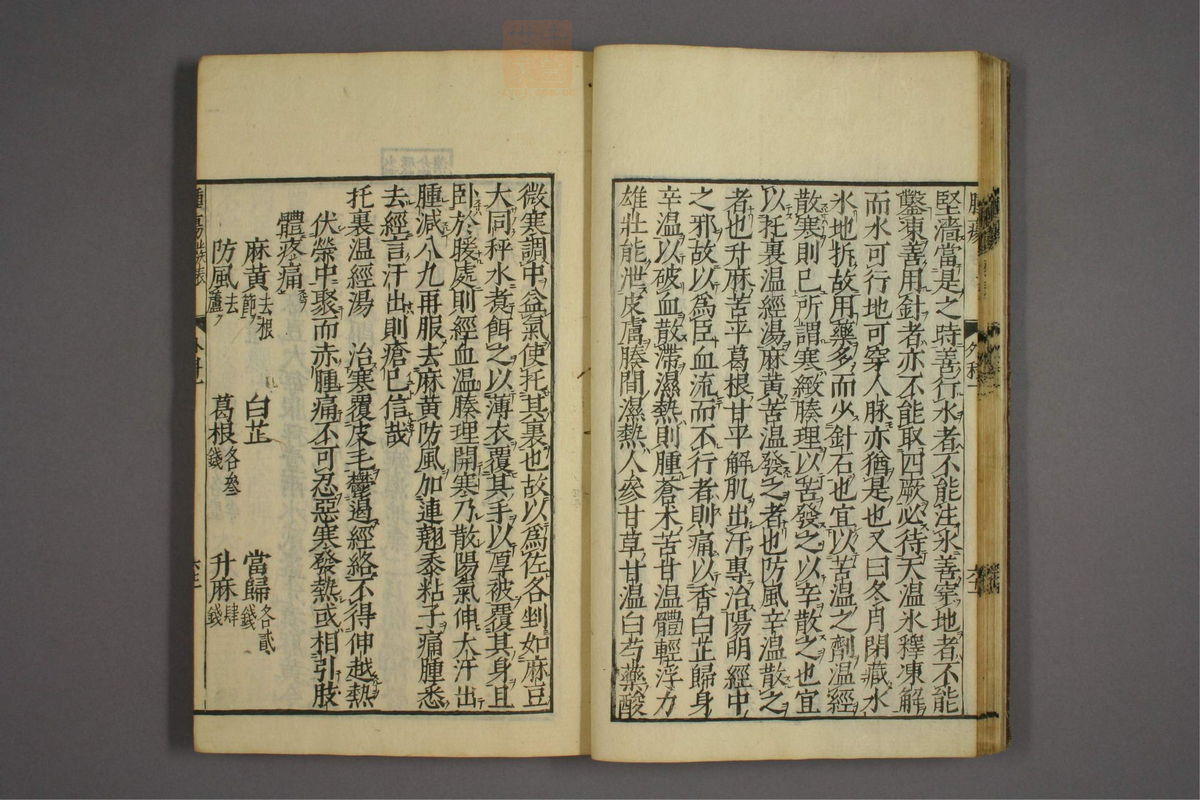 堅濇當是之時善行水者不能注氷善穿地者不能
鑿凍善用針者亦不能取四厥必待天温氷釋凍解
而水可行地可穿人脉亦猶是也又曰冬月閉藏水
氷地拆故用藥多而少針石也宜以苦温之劑温經
散寒則已所謂寒緻腠理以苦發之以辛散之也宜
以托裏温經湯麻黄苦温發之者也防風辛温散之
者也升麻苦平葛根甘平解肌出汗專治陽明經中
之邪故以爲臣血流而不行者則痛以香白芷歸身
辛温以破血散滯濕熱則腫蒼朮苦甘温體輕浮力
雄壯能泄皮膚腠間濕熱人參甘草甘温白芍藥酸
微寒調中益氣使托其裏也故以爲佐各剉如麻豆
大同秤水煮餌之以薄衣覆其手以厚被覆其身且
卧於暖處則經血温腠理開寒乃散陽氣伸大汗出
腫減八九再服去麻黄防風加連翹黍粘子痛腫悉
去經言汗出則瘡已信哉
托裏温經湯　治寒覆皮毛鬱遏經絡不得伸越熱
伏榮中聚而赤腫痛不可忍惡寒發熱或相引肢
體疼痛
麻黄去根節　白芷　當歸各貳錢
防風去蘆　葛根各參錢　升麻肆錢